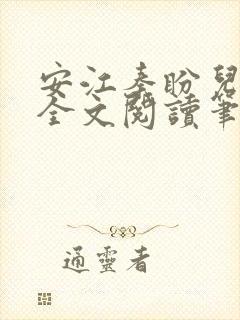 安江秦盼兒
全文閱讀筆
通靈者